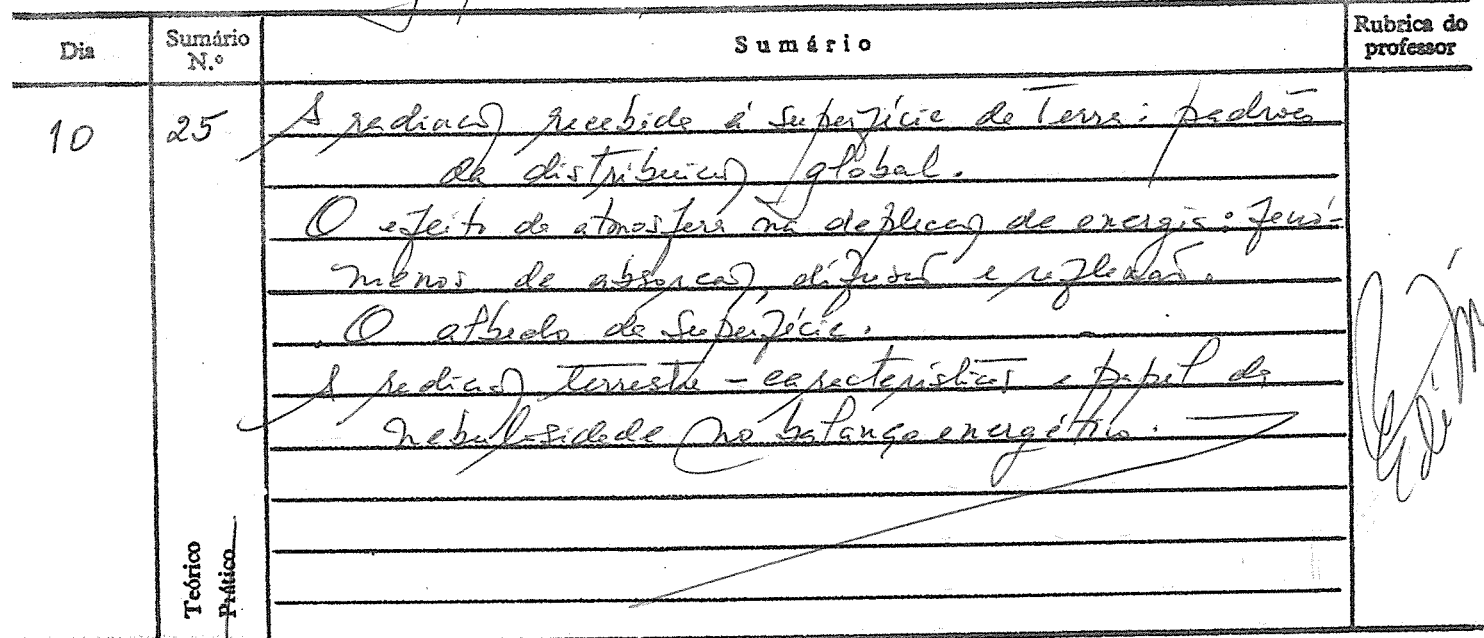 Dia Sumário N.º Sumário Rubrica do professor
10 25 A radiação recebida à superfície da Terra: padrões
da distribuição global.
O efeito da atmosfera na depleção de energia: fenó-
menos de absorção, difusão e reflexão.
O albedo da superfície.
A radiação terrestre - características e papel da
nebulosidade no balanço energético.
Teórico
Prático